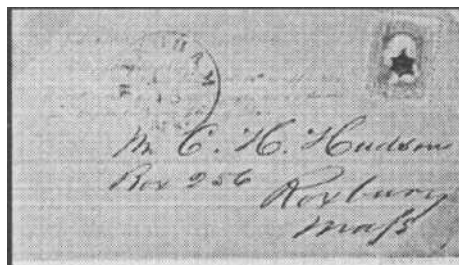 Mr. C. H. Hudson
Box 256
Roxbury
Mass